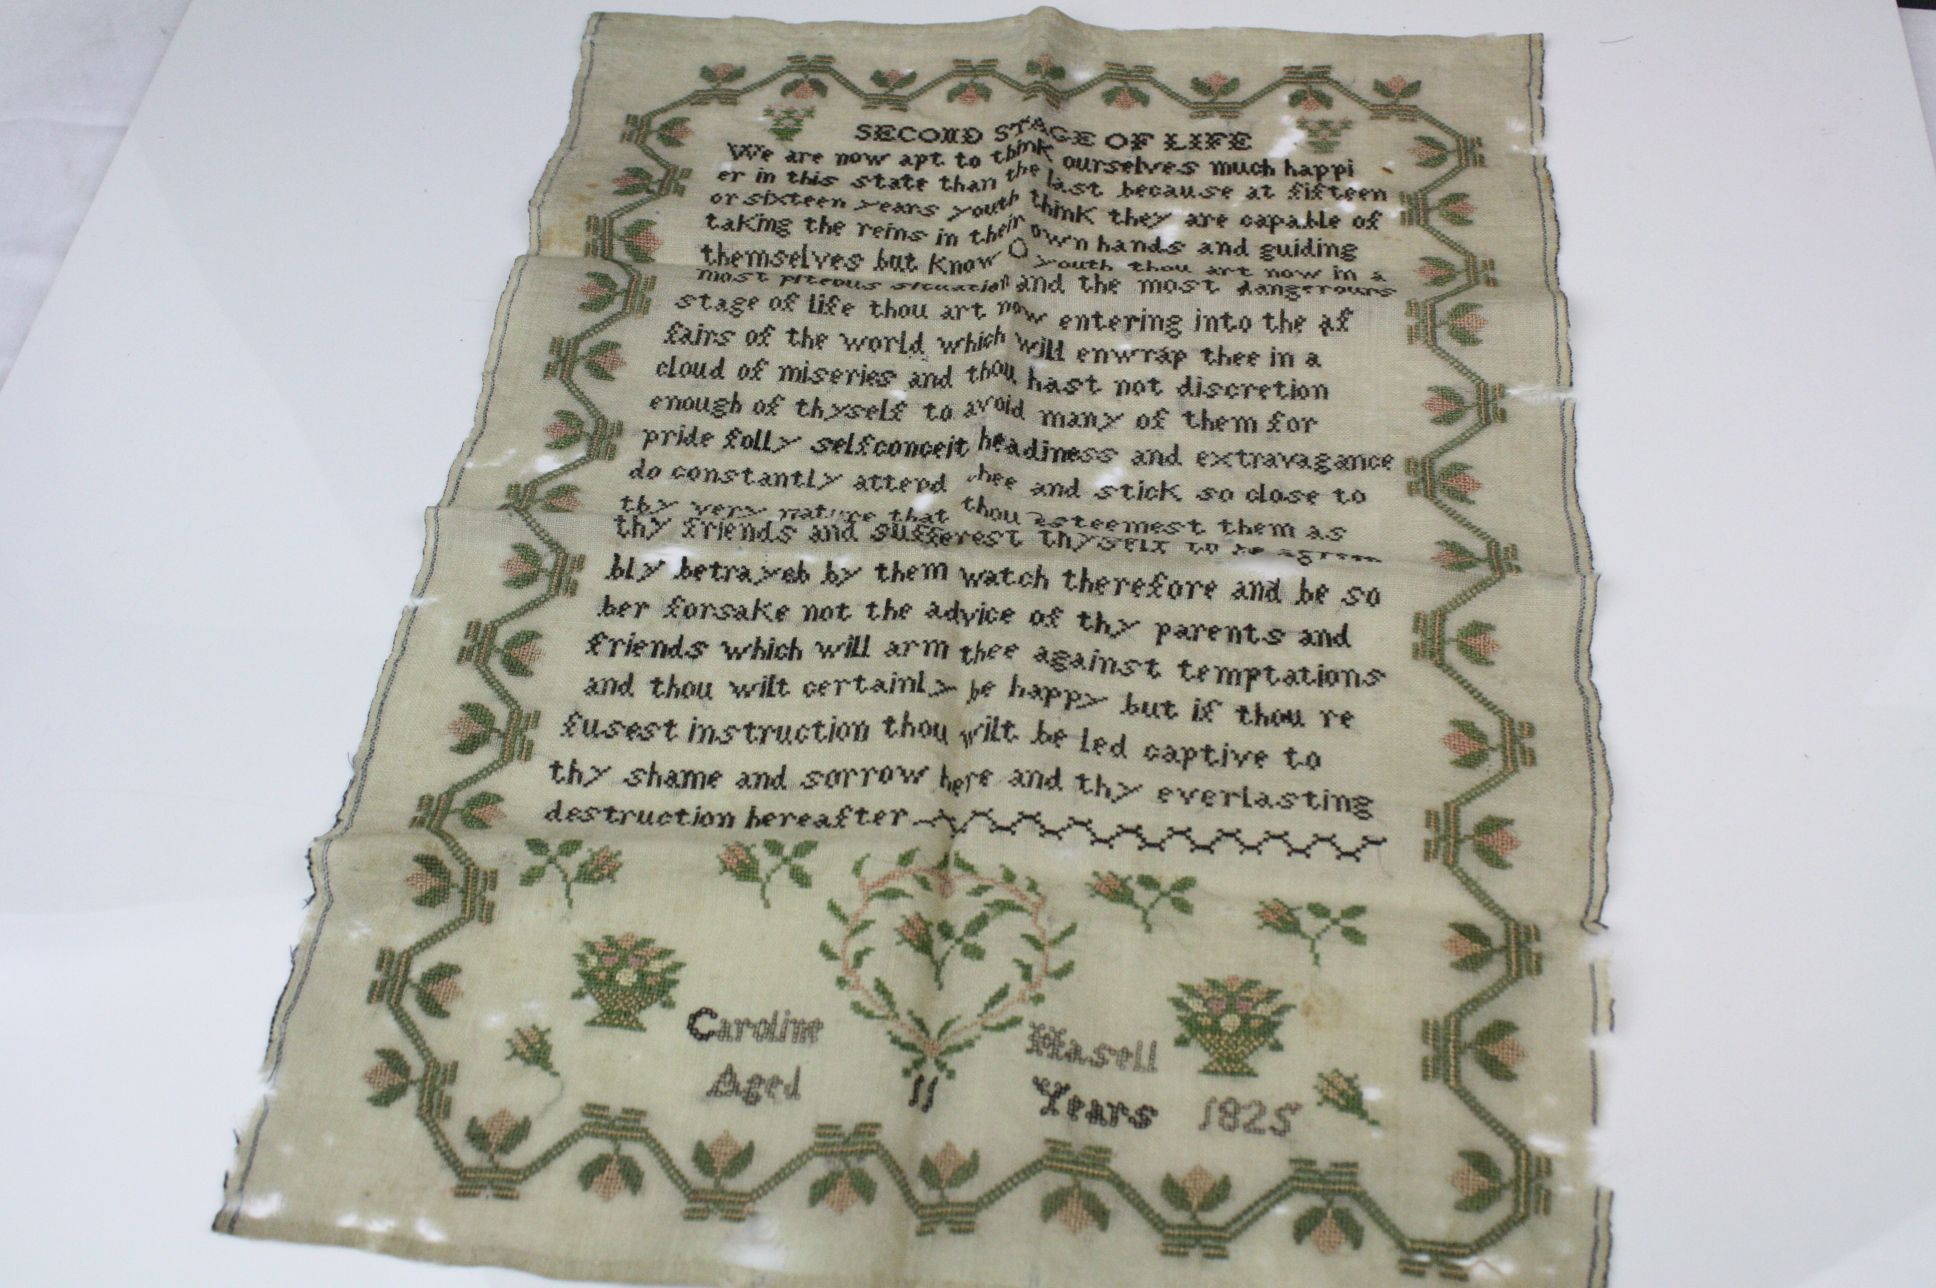 SECOND STAGE OF LIFE
We are now apt to think ourselves much happi
er in this state than the last because at fifteen
or sixteen years youth think they are capable of
taking the reins in their own hands and guiding
themselves but know O youth thou art now in a
most piteous situation and the most dangerours
stage of life thou art now entering into the af
fairs of the world which will enwrap thee in a
cloud of miseries and thou hast not discretion
enough of thyself to avoid many of them for
pride folly selfconceit headiness and extravagance
do constantly attend thee and stick so close to
thy very nature that thou esteemest them as
thy friends and sufferest thyself to be agreea
bly betrayeb by them watch therefore and be so
ber forsake not the advice of thy parents and
friends which will arm thee against temptations
and thou wilt certainly be happy but if thou re
fusest instruction thou wilt be led captive to
thy shame and sorrow here and thy everlasting
destruction hereafter
Caroline Hasell
Aged 11 Years 1825